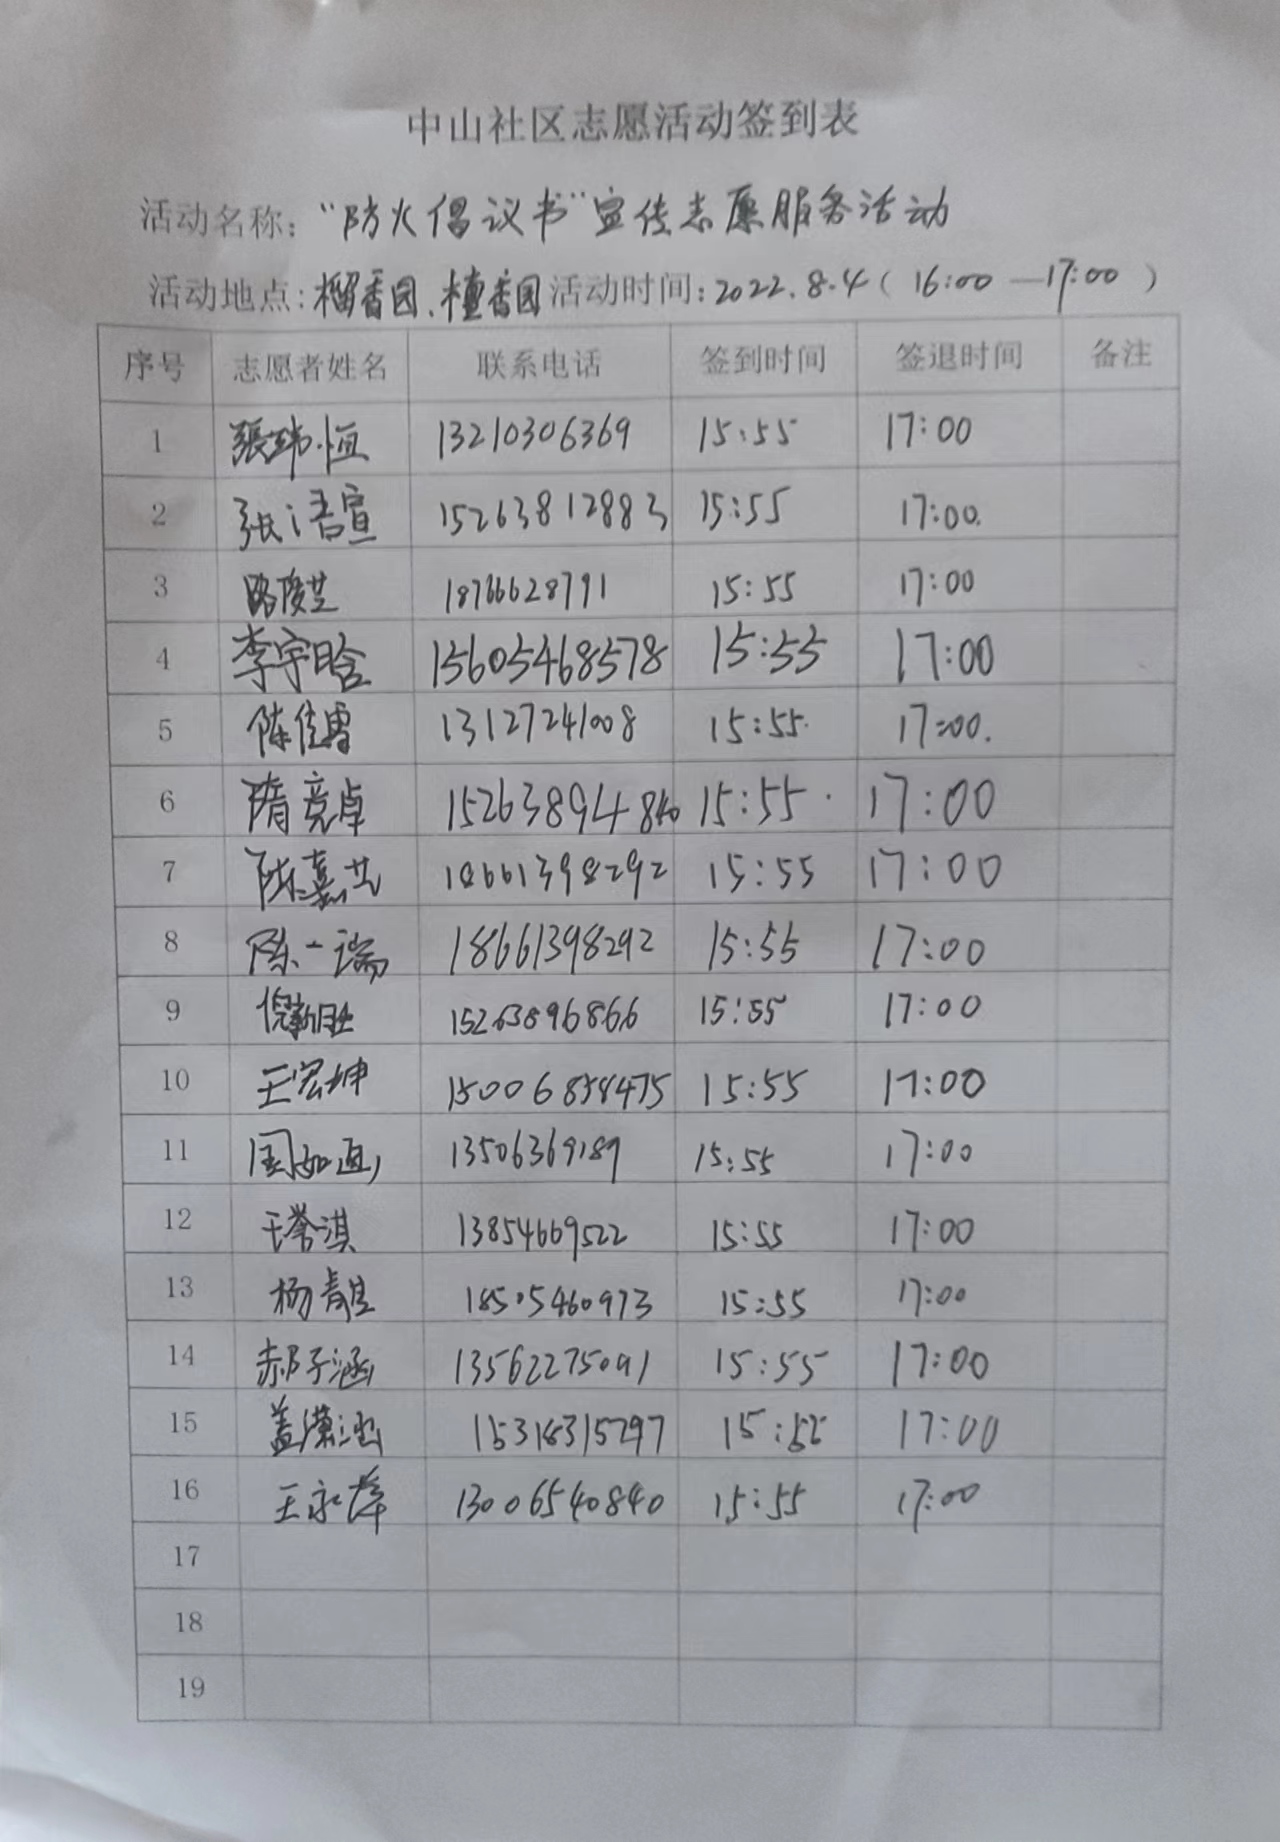 中山社区志愿活动签到表
活动名称："防火倡议书"宣传志愿服务活动
活动地点:榴香园、檀香园 活动时间:2022.8.4(16:00—17:00)
序号 志愿者姓名 联系电话 签到时间 签退时间 备注
1 張玮恒 13210306369 15:55 17:00
2 张语宣 15263812883 15:55 17:00.
3 路俊芝 18766628791 15:55 17:00
4 李宇晗 15605468578 15:55 17:00
5 陈佳雪 13127241008 15:55. 17:00.
6 隋竞卓 15263894840 15:55. 17:00
7 陈嘉艺 18661398292 15:55 17:00
8 陈一瑞 18661398292 15:55 17:00
9 倪新胜 15263896866 15:55 17:00
10 王宏坤 15006858475 15:55 17:00
11 周如 13506369189 15:55 17:00
12 王誉淇 13854669522 15:55 17:00
13 杨 18505460973 15:55 17:00
14 郝子涵 13562275091 15:55 17:00
15 盖潇涵 15318315297 15:55 17:00
16 王永萍 13006540840 15:55 17:00
17
18
19